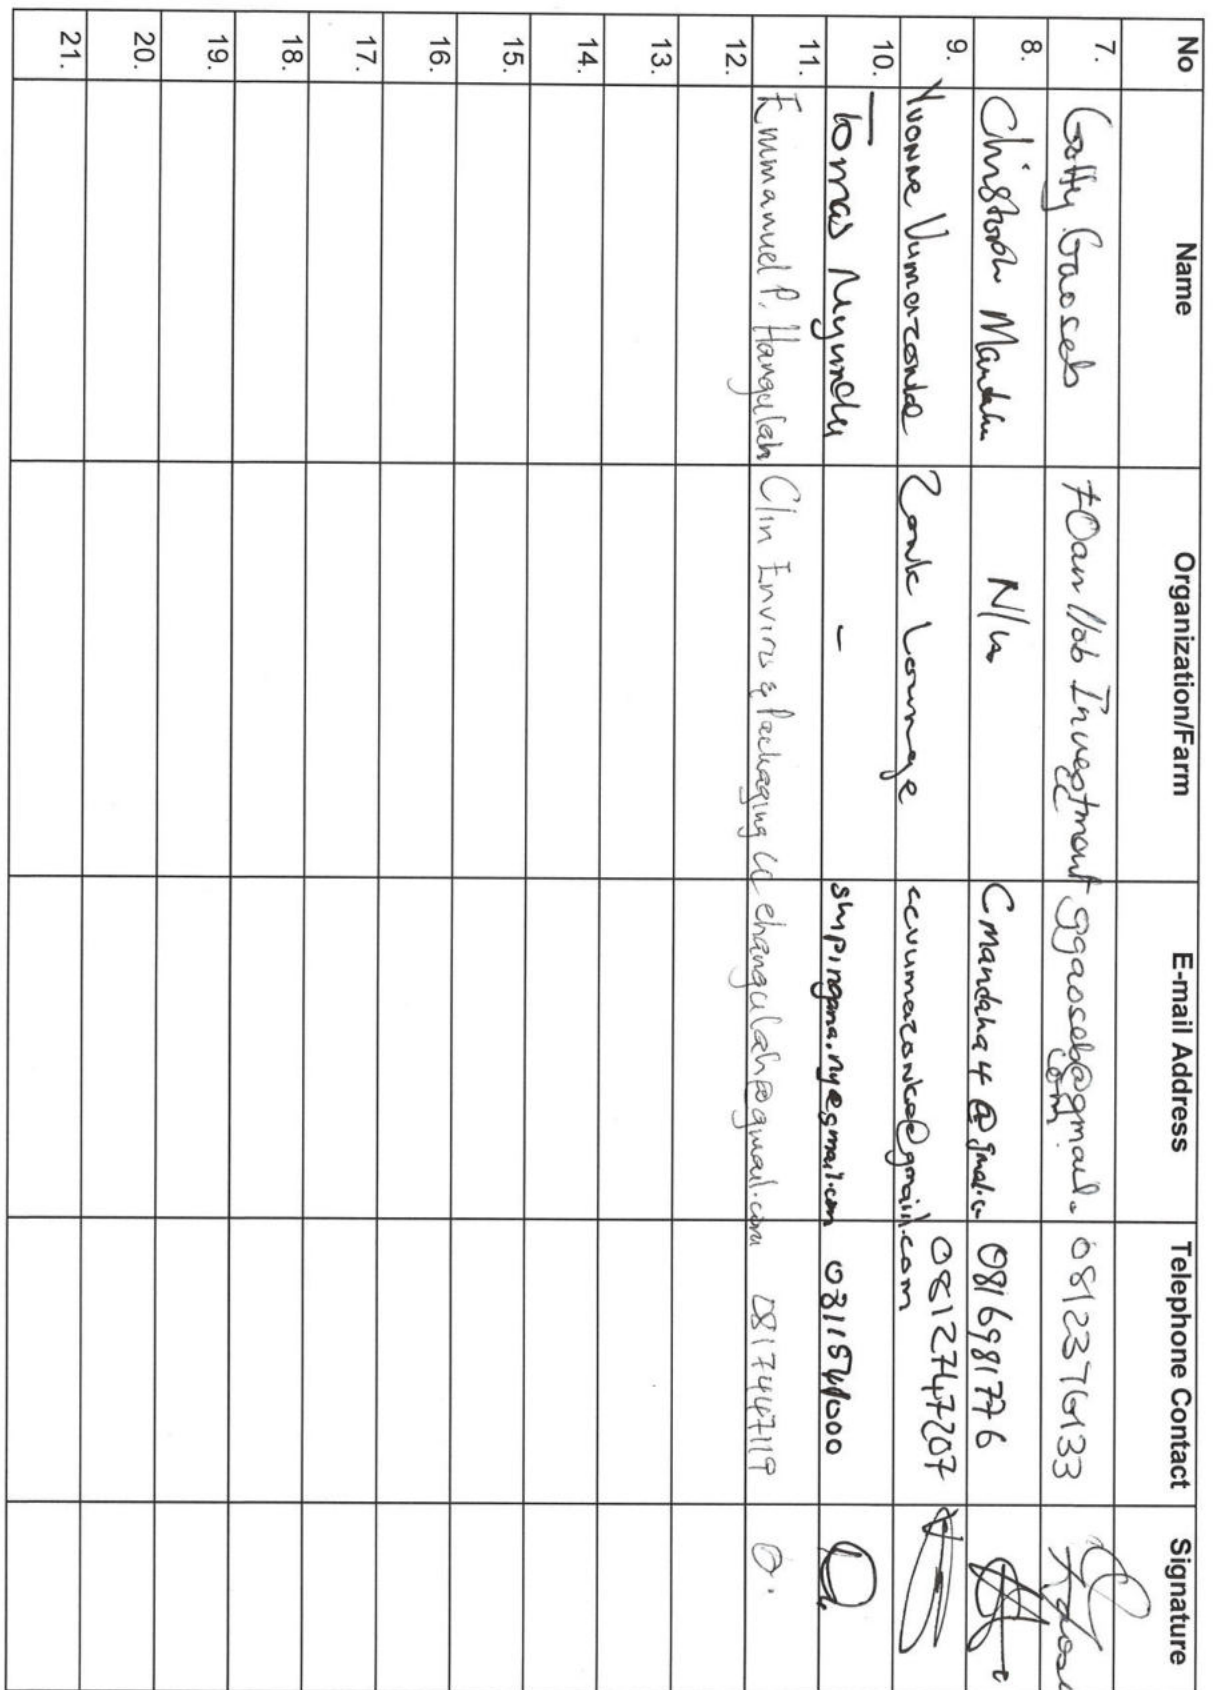 No Name Organization/Farm E-mail Address Telephone Contact Signature
7. Gotty Gaoseb ǂOan //ob Investment ggaoseb@gmail. 0812376133
CC com
8. Christoph Mandaha N/a Cmandaha4@gmail.co 0816981776
9. Yvonne Vumazonke Zonk Lounge acvumazonke@gmail.com 0812747207
10. Tomas Nyundu - shipingana.ny@gmail.com 0811541000
11. Emmanuel P. Hangulah Clin Enviro & Packaging CC ehangulah@gmail.com 0817447119
12.
13.
14.
15.
16.
17.
18.
19.
20.
21.